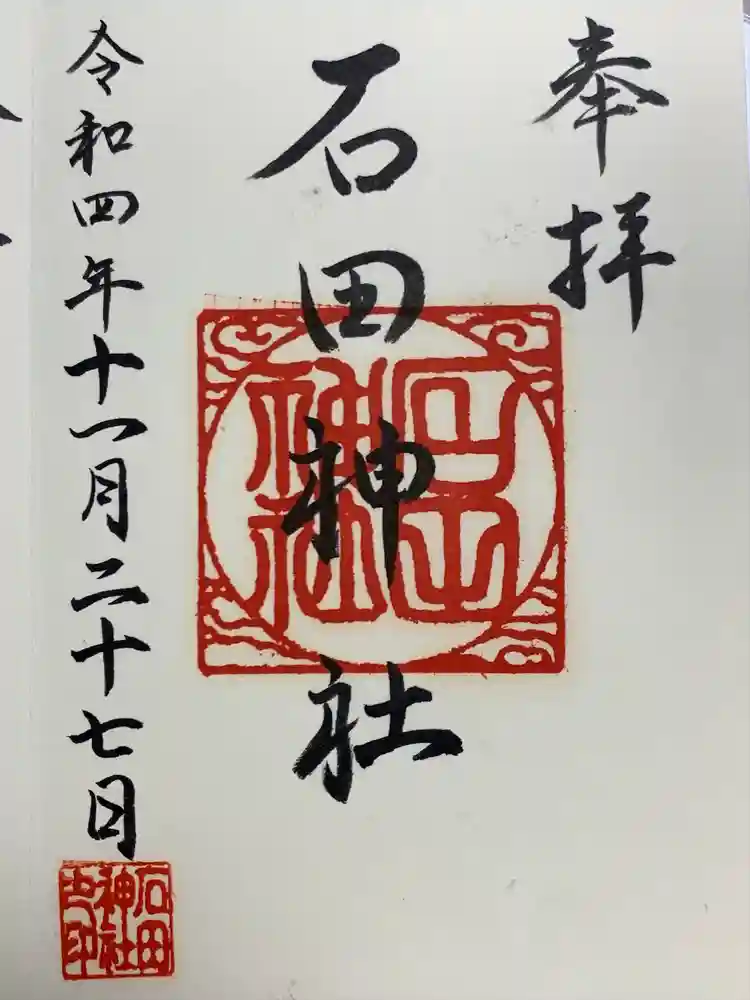 奉拝
石田神社
石田神社
令和四年十一月二十七日
石田
神社
之印